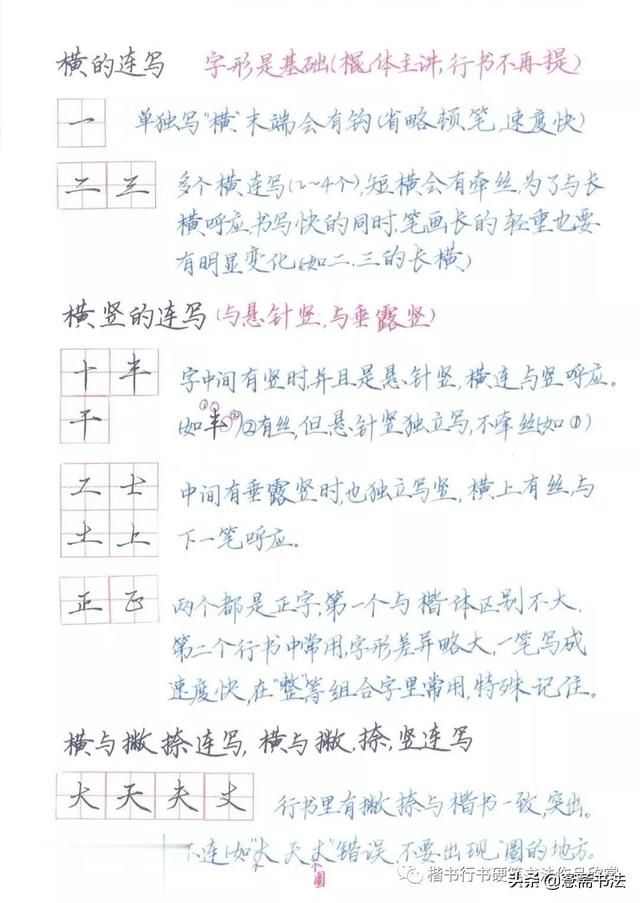 横的连写 字形是基础(楷体主讲,行书不再提)
一 单独写"横"末端会有钩(省略顿笔,速度快)
二 三 多个横连写(2~4个),短横会有牵丝,为了与长
横呼应,书写快的同时,笔画长的轻重也要
有明显变化(如二.三的长横)
横竖的连写(与悬针竖,与垂露竖)
十 半 字中间有竖时,并且是悬针竖,横连与竖呼应。
干 (如①半②)②有丝,但悬针竖独立写,不牵丝(如①)
工 士 中间有垂露竖时,也独立写竖,横上有丝,与
土 上 下一笔呼应。
正 正 两个都是正字,第一个与楷体区别不大.
第二个行书中常用,字形差异略大,一笔写成
速度快,在"整"等组合字里常用,特殊记住。
横与撇捺连写,横与撇,捺,竖连写
大 天 夫 丈 行书里有撇捺与楷书一致,突出。
下连(如"大 天 丈"错误,不要出现"圈的地方。
个圈
楷书行书硬笔书法作品欣赏
头条@慧斋书法